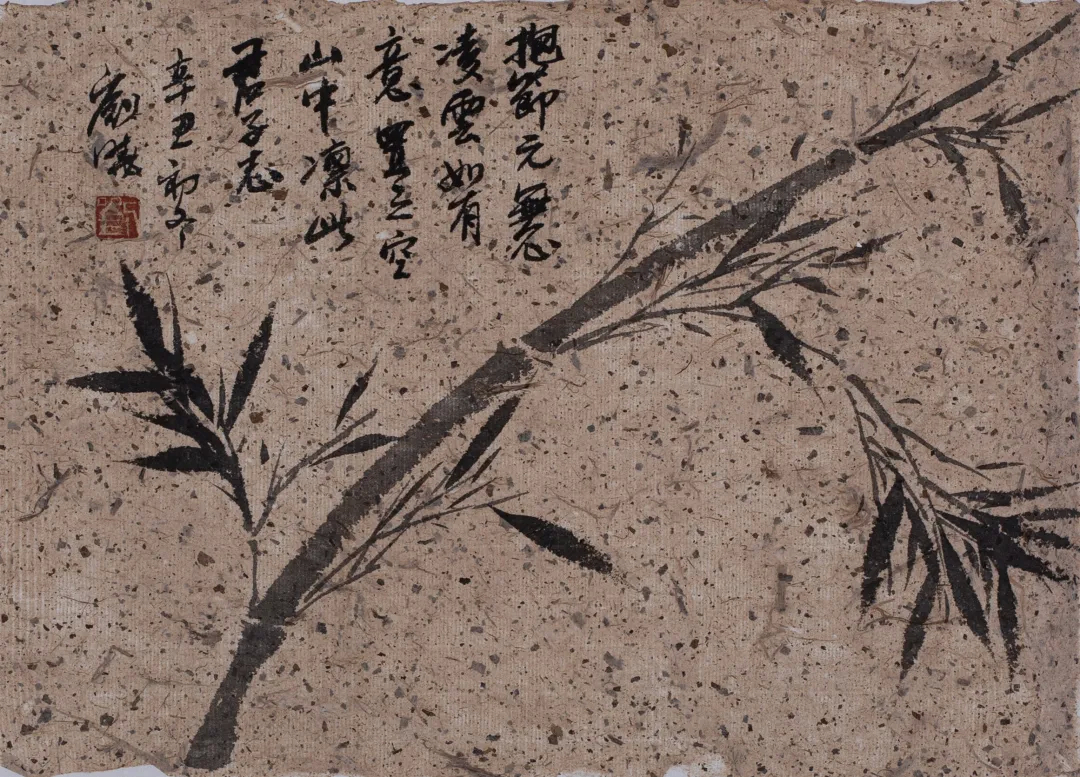 抱節元無心
凌雲如有
意置之空
山中凜此
君子志
辛丑初冬
劉